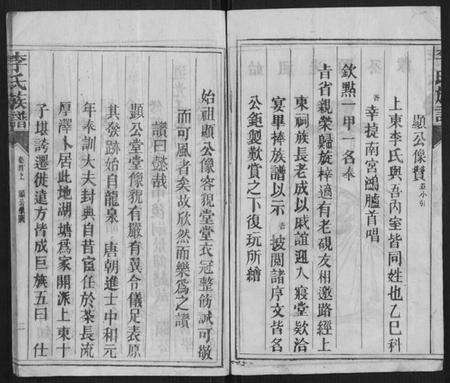 顯公像贊 並小引
上東李氏與吾內室皆同姓也乙巳科
吾幸捷南宮鴻臚首唱
欽點一甲一名奉
旨省親榮歸旋梓適有老硯友州邀路經上
東祠族長老成以戚誼迎入寢堂欵洽
宴畢捧族譜以示吾披閱諸序文皆名
公鉅製歎賞之下復玩所繪
始祖顯公像容貌堂堂衣冠整飭誠可敬
而可風者矣故欣然而樂為之讚
讚曰懿哉
顯公堂堂像貌有嚴有翼令儀足表原
其發跡始自龍泉 唐朝進士中和元
年奉訓大夫封典自昔宦任於茶長流
厚澤卜居此地湖塘為家開派上東十
子堪誇遷徙遠方皆成巨族五曰 仕
李氏族譜
卷首上
顯公像贊